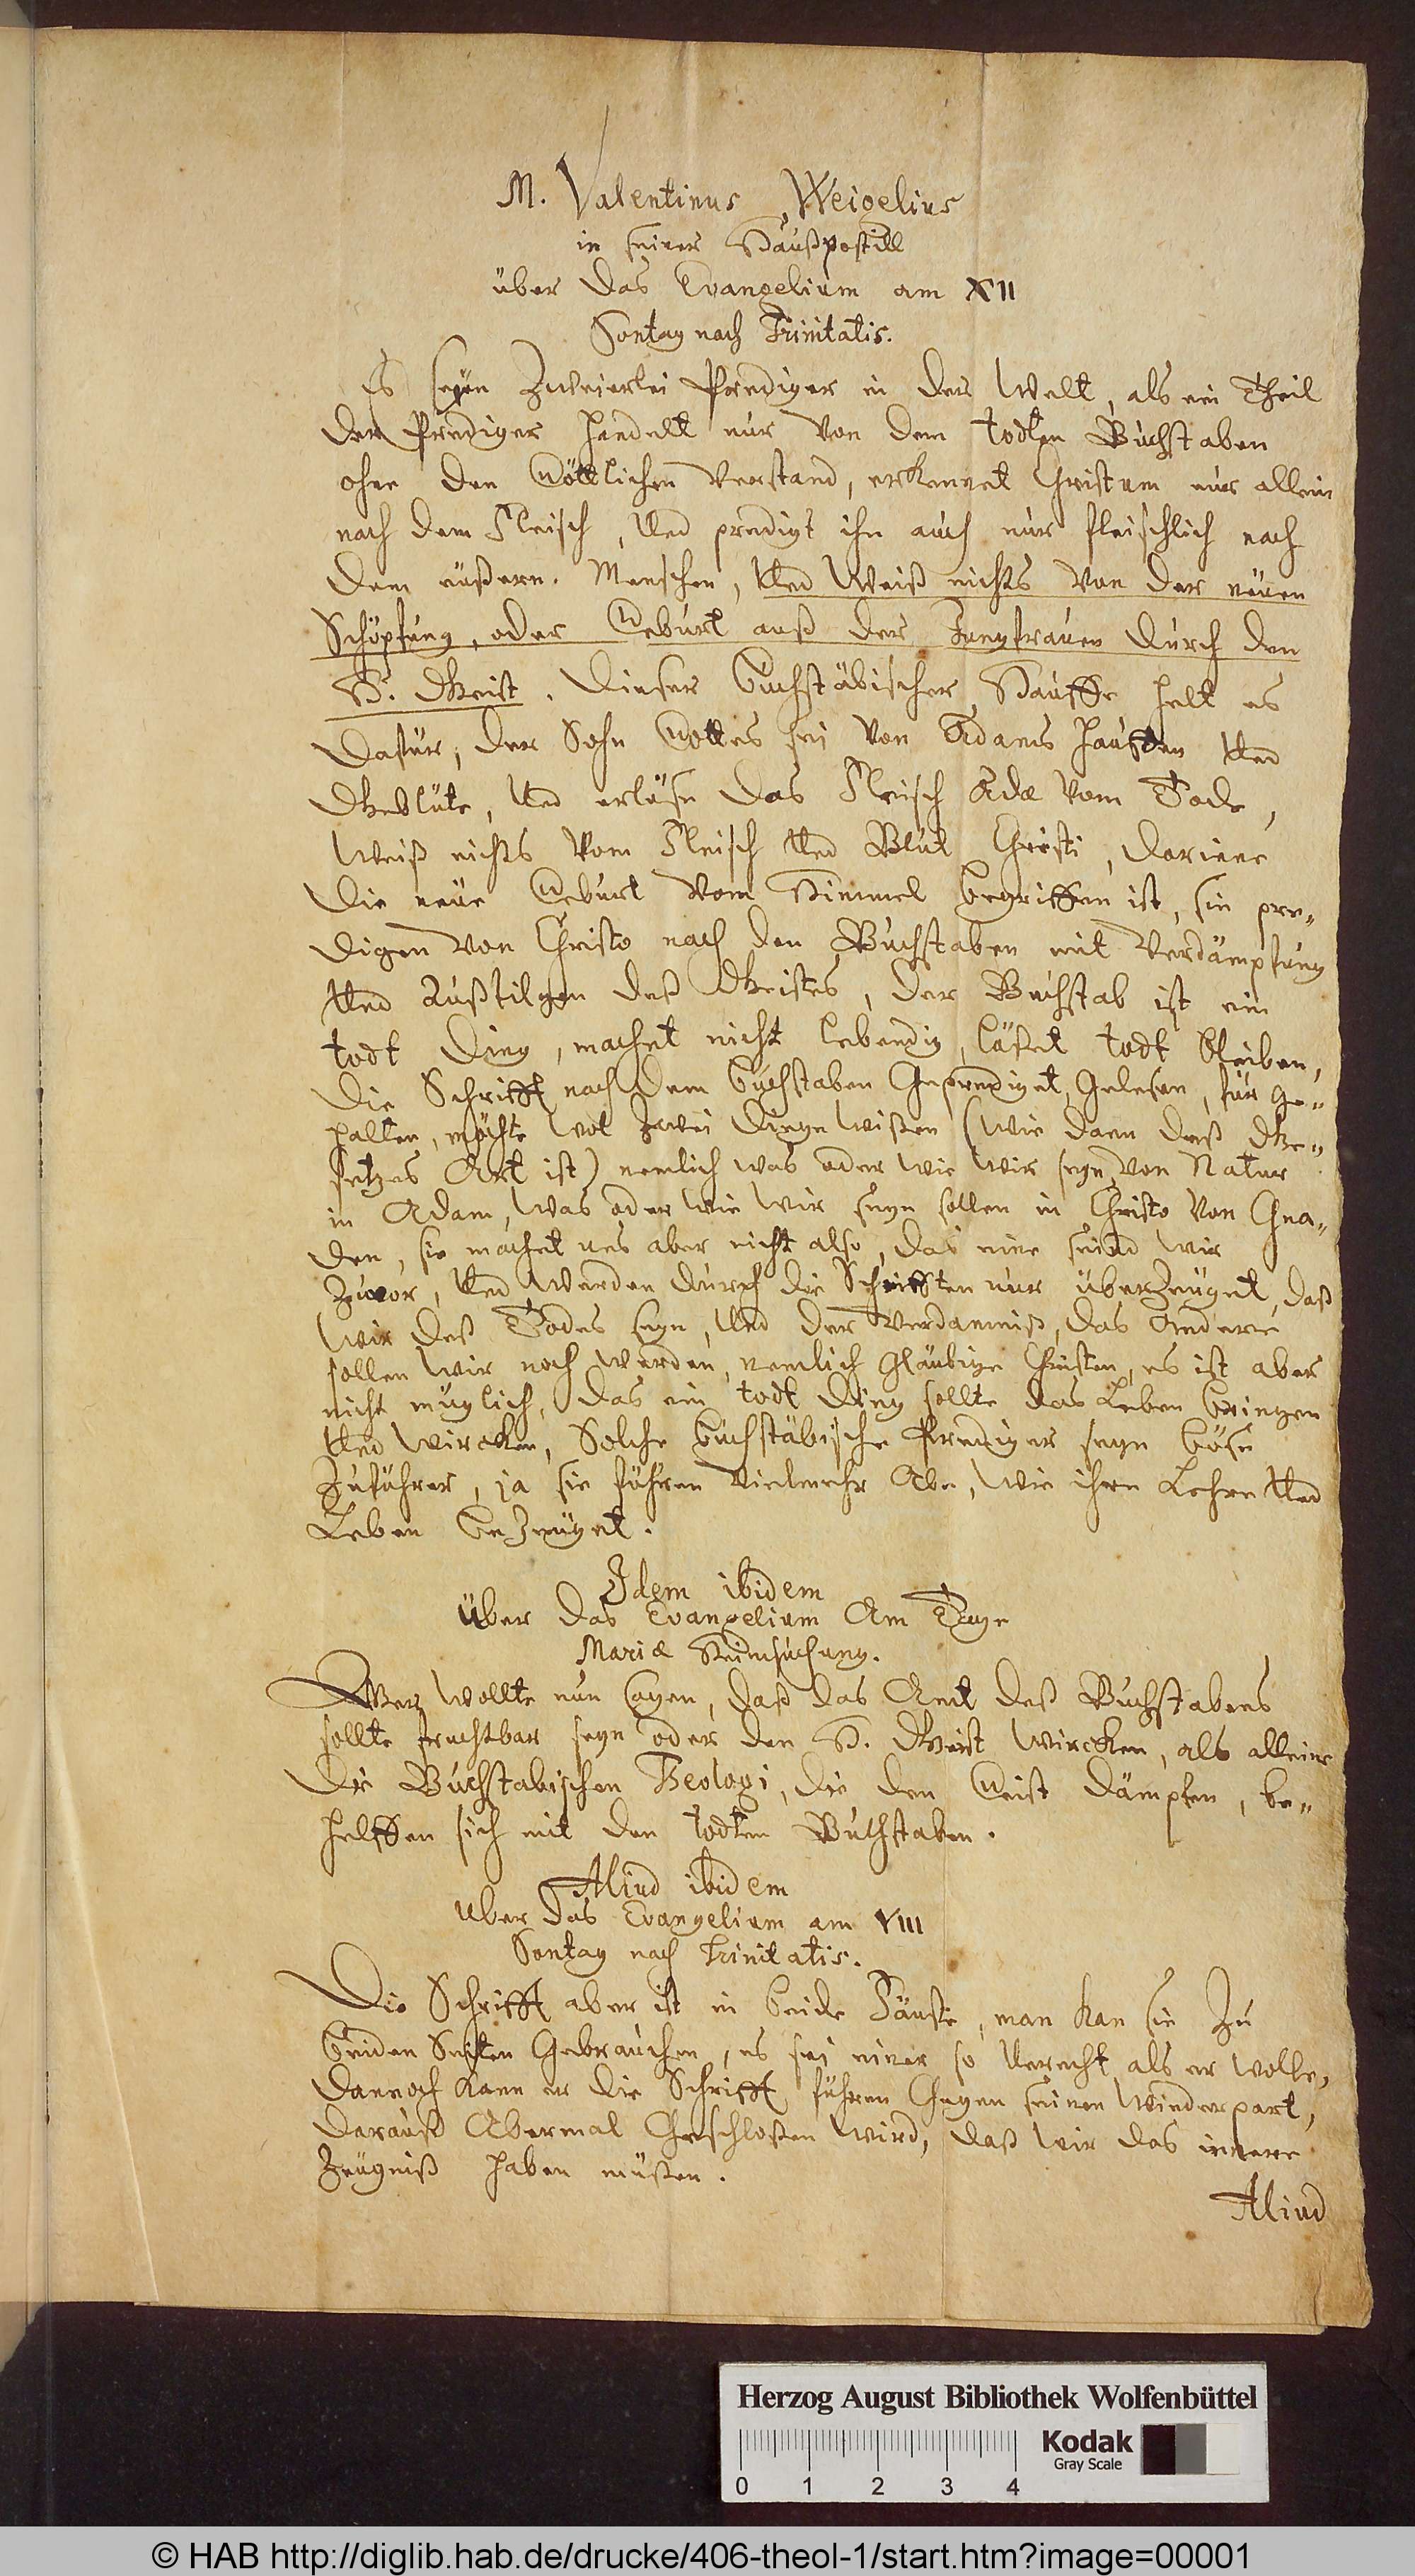 M. Valentinus Weigelius
in seiner Haußpostill
über das Evangelium am XII
Sontag nach Trinitatis.
Es seyen Zweierlei Prediger in der Welt, als ein Theil
der Prediger handelt nur von dem todten Buchstaben
ohne den Göttlichen Verstand, erkennet Christum nur allein
nach dem Fleisch, Und predigt ihn auch nur fleischlich nach
dem eüßern Menschen, Und Weiß nichts von der neüen
Schöpfung, oder Geburt auß der Jungfrauen durch den
H. Geist. Dieser buchstäbischer Hauffe helt es
dafür, der Sohn Gottes sei von Adams hauffen Und
Geblüte, Und erlöse das Fleisch Adæ vom Tode,
Weiß nichts vom Fleisch Und Blut Christi, darinne
die neüe Geburt vom Himmel begriffen ist, sie pre„
digen von Christo nach den Buchstaben mit Verdämpfung
Und Außtilgen deß Geistes, der Buchstab ist ein
todt ding, machet nicht lebendig, läßet todt bleiben,
die Schrifft nach dem buchstaben Geprediget, Gelesen, für ge„
halten, möchte wol Zwei dinge wißen (wie dann deß Ge„
setzes Art ist) nemlich was oder wie wir seyn von Natur
in Adam, was oder wie wir seyn sollen in Christo von Gna„
den, sie machet uns aber nicht also, das eine seind wir
Zuvor, Und werden durch die Schrifften nur überzeüget, daß
wir deß Todes seyn, Und der Verdamniß, das Andere
sollen wir noch werden, nemlich Gläubige Christen, es ist aber
nicht müglich, das ein todt ding sollte das Leben bringen
Und wircken, Solche buchstäbische Prediger seyn böse
Zuführer, ja sie führen vielmehr Abe, wie ihre Lehre Und
Leben bezeüget.
Idem ibidem
Über das Evangelium Am Tage
Mariæ Heimsuchung.
Wer wollte nun sagen, daß das Amt deß Buchstabens
sollte fruchtbar seyn oder den H. Geist wircken, als alleine
die Buchstabischen Theologi, die den Geist dämpfen, be„
helffen sich mit den todten Buchstaben.
Aliud ibidem
Uber das Evangelium am VIII
Sontag nach Trinitatis.
Die Schrifft aber ist in beide Fäuste, man kan sie Zu
beiden Seiten Gebrauchen, es sei einer so Unrecht als er wolle,
dannoch kann er die Schrifft führen Gegen seinen Wiederpart,
darauß Abermal Geschloßen wird, daß wir das innere
Zeügniß haben müßen.
Aliud
Herzog August Bibliothek Wolfenbüttel
Kodak
Gray Scale
0 1 2 3 4
© HAB http://diglib.hab.de/drucke/406-theol-1/start.htm?image=00001